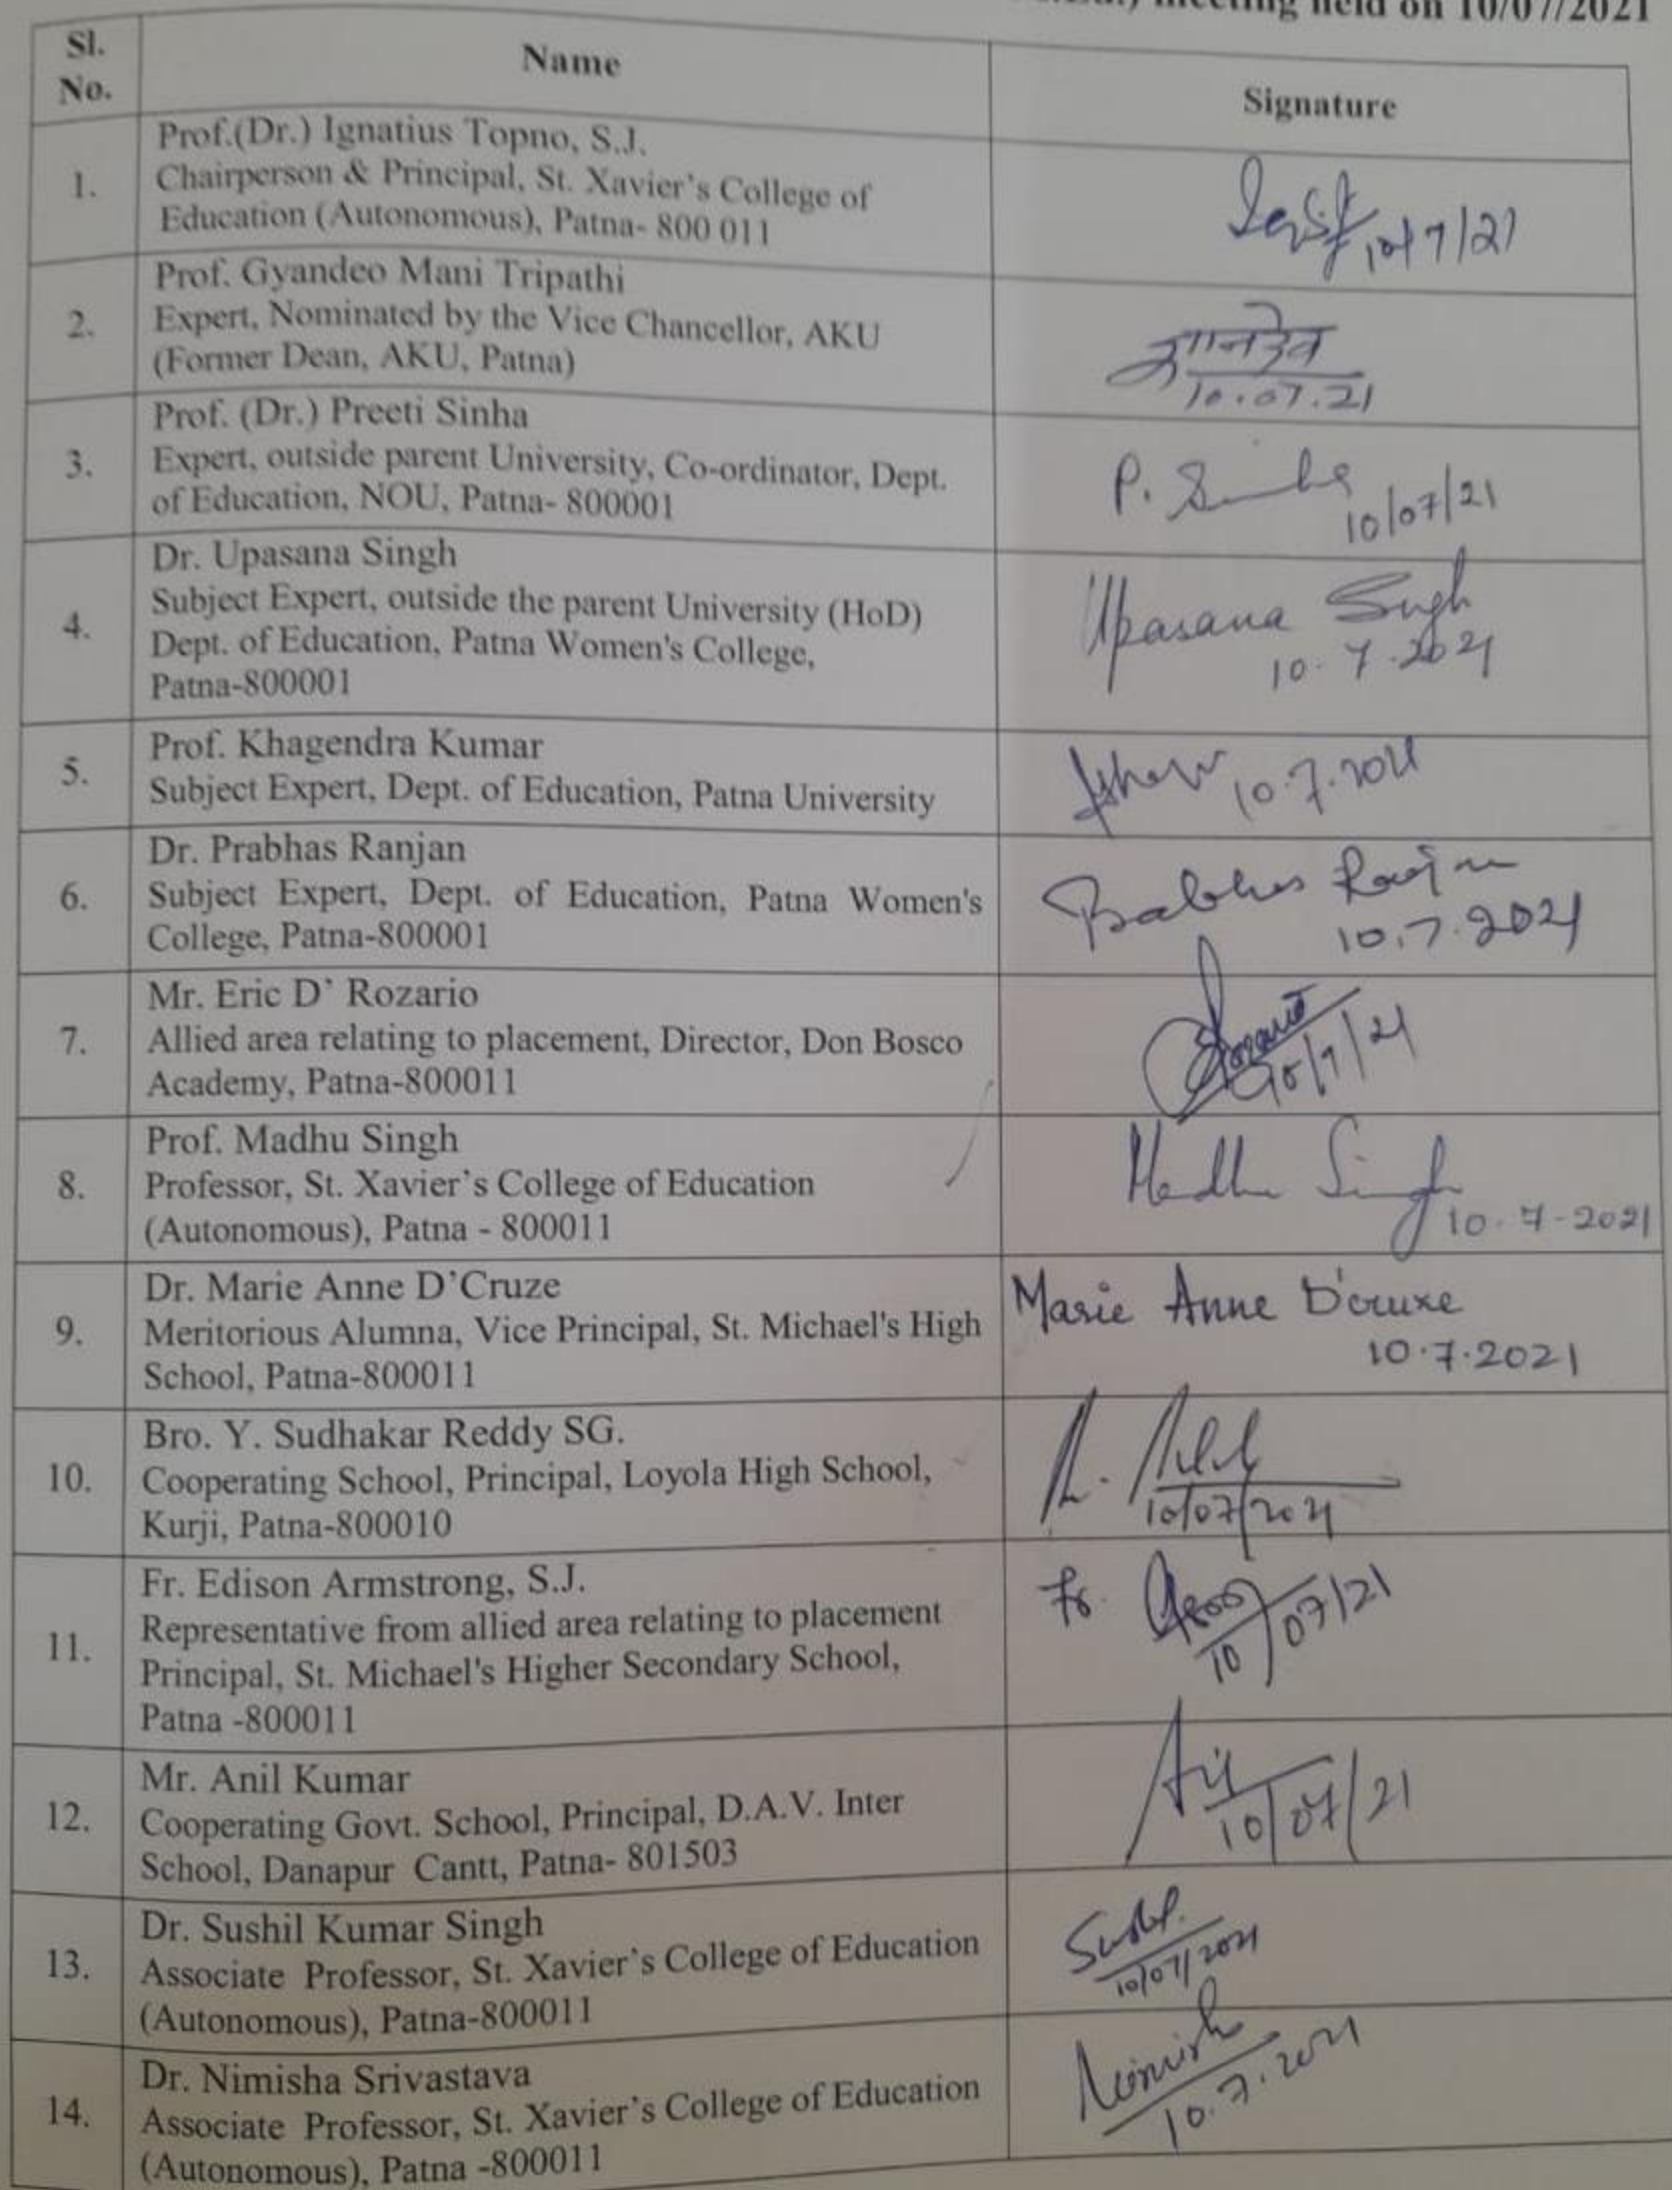 meeting held on 10/07/2021
Sl.
No.
Name
Signature
1.
Prof.(Dr.) Ignatius Topno, S.J.
Chairperson & Principal, St. Xavier's College of
Education (Autonomous), Patna- 800 011
10/7/21
2.
Prof. Gyandeo Mani Tripathi
Expert, Nominated by the Vice Chancellor, AKU
(Former Dean, AKU, Patna)
ज्ञानदेव
10.07.21
3.
Prof. (Dr.) Preeti Sinha
Expert, outside parent University, Co-ordinator, Dept.
of Education, NOU, Patna- 800001
P. Sinha
10/07/21
4.
Dr. Upasana Singh
Subject Expert, outside the parent University (HoD)
Dept. of Education, Patna Women's College,
Patna-800001
Upasana Singh
10.7.2021
5.
Prof. Khagendra Kumar
Subject Expert, Dept. of Education, Patna University
10.7.2021
6.
Dr. Prabhas Ranjan
Subject Expert, Dept. of Education, Patna Women's
College, Patna-800001
Prabhas Ranjan
10.7.2021
7.
Mr. Eric D' Rozario
Allied area relating to placement, Director, Don Bosco
Academy, Patna-800011
10/7/21
8.
Prof. Madhu Singh
Professor, St. Xavier's College of Education
(Autonomous), Patna - 800011
Madhu Singh
10.7-2021
9.
Dr. Marie Anne D'Cruze
Meritorious Alumna, Vice Principal, St. Michael's High
School, Patna-800011
Marie Anne D'cruze
10.7.2021
10.
Bro. Y. Sudhakar Reddy SG.
Cooperating School, Principal, Loyola High School,
Kurji, Patna-800010
10/07/2021
11.
Fr. Edison Armstrong, S.J.
Representative from allied area relating to placement
Principal, St. Michael's Higher Secondary School,
Patna -800011
Fr.
10/07/21
12.
Mr. Anil Kumar
Cooperating Govt. School, Principal, D.A.V. Inter
School, Danapur Cantt, Patna- 801503
10/07/21
13.
Dr. Sushil Kumar Singh
Associate Professor, St. Xavier's College of Education
(Autonomous), Patna-800011
10/07/2021
14.
Dr. Nimisha Srivastava
Associate Professor, St. Xavier's College of Education
(Autonomous), Patna -800011
10.7.2021